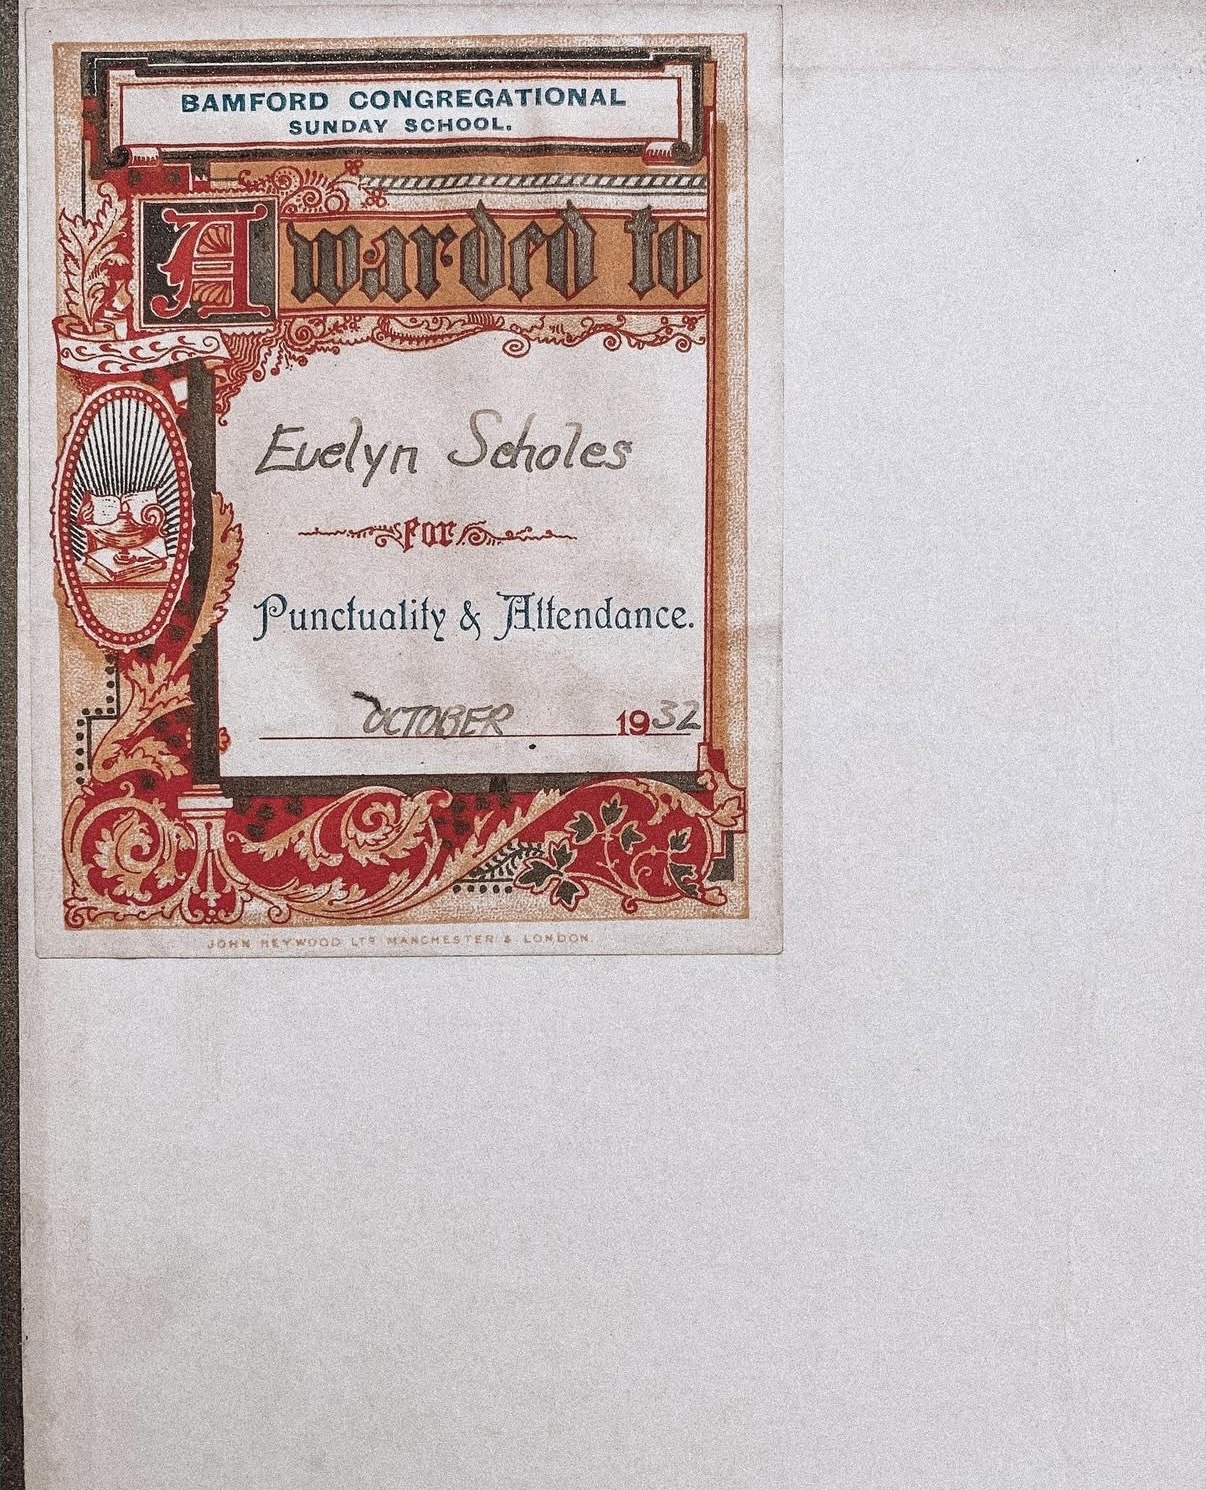 BAMFORD CONGREGATIONAL
SUNDAY SCHOOL.
Awarded to
Evelyn Scholes
for
Punctuality & Attendance.
OCTOBER 1932
JOHN HEYWOOD LTD MANCHESTER & LONDON.